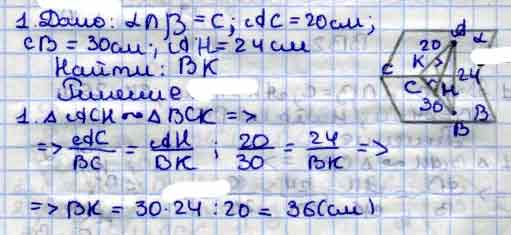 1. Дано: α∩β = c; AC = 20 см;
CB = 30 см; AH = 24 см
Найти: BK
Решение
1. △ ACH ∾ △ BCK =>
=> AC/BC = AH/BK ; 20/30 = 24/BK =>
=> BK = 30·24 : 20 = 36 (см)
A α
20
K
24
C
C H
30
B
B